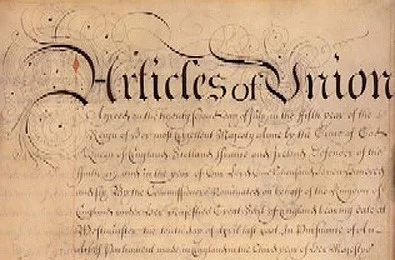 Articles of Union
Agreed on the twenty Second day of July in the fifth year of the
Reign of Her most Excellent Majesty Anne by the Grace of God
Queen of England Scotland France and Ireland Defender of the
Faith &c. and in the year of Our Lord One thousand Seven hundred
and Six By the Commissioners Nominated on behalf of the Kingdom of
England under Her Majesties Great Seal of England bearing date at
Westminster the tenth day of April last past in Pursuance of an
Act of Parliament made in England in the third year of Her Majesties